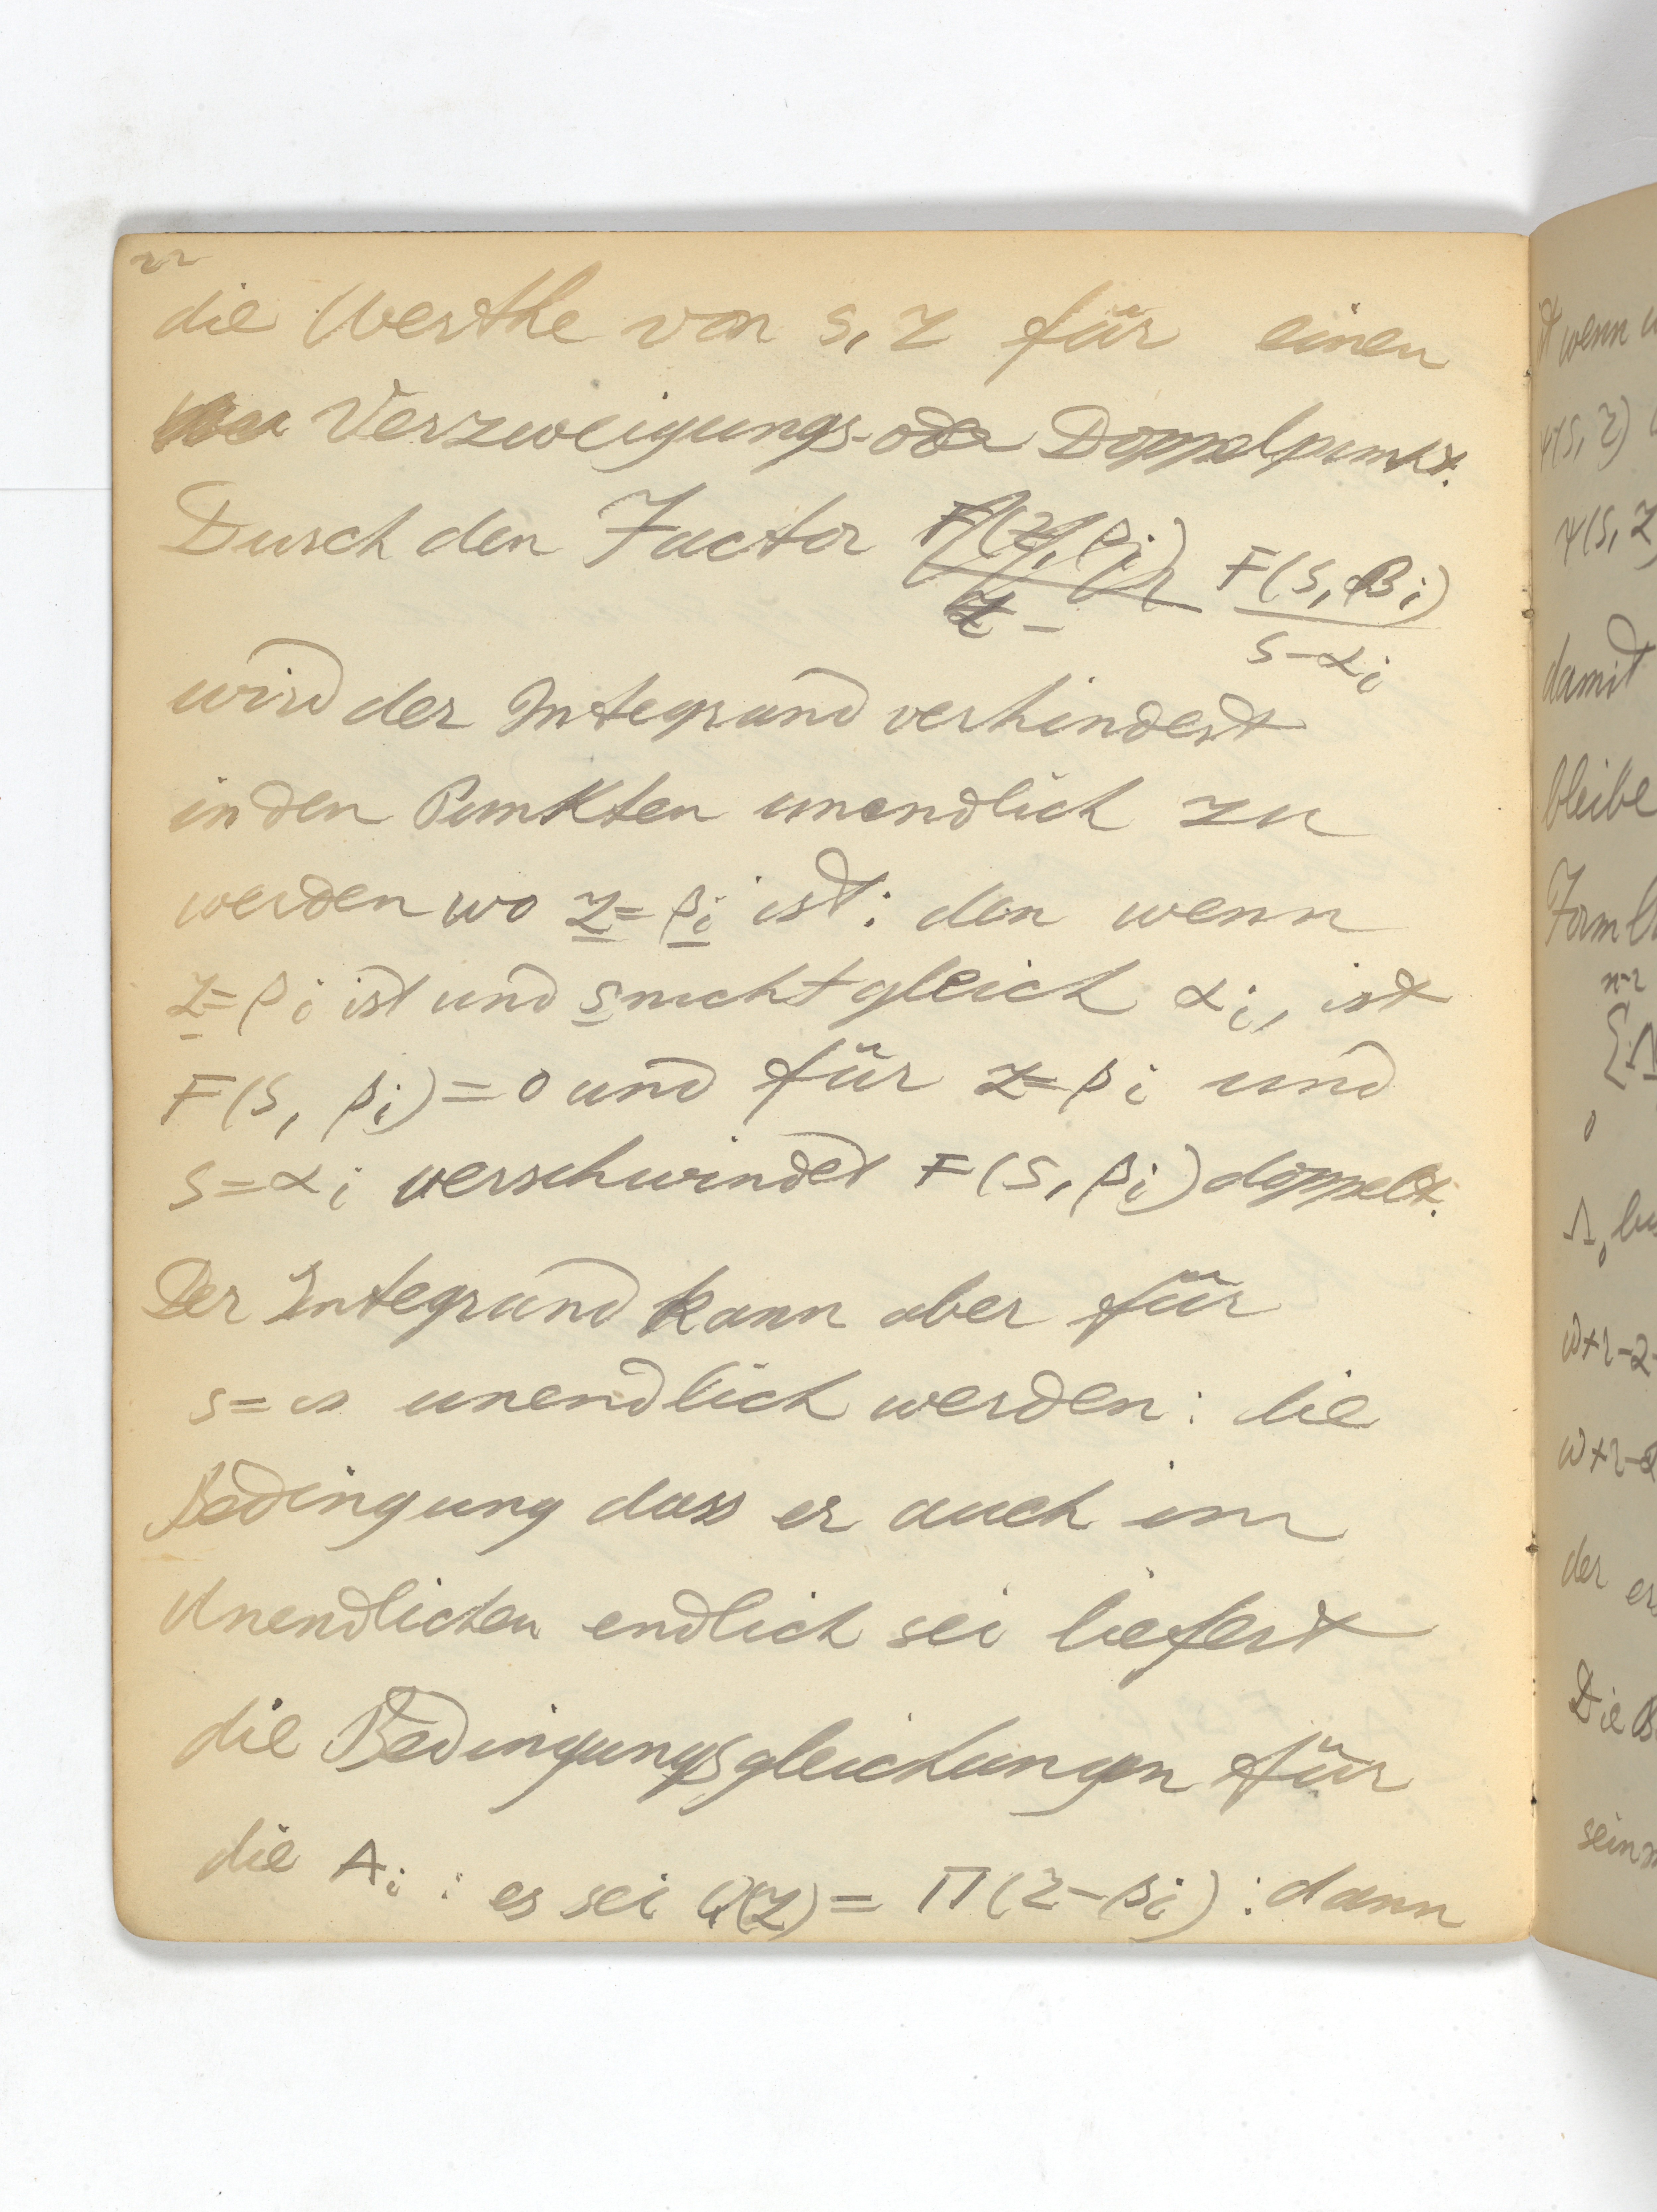 22
die Werthe von s, z für einen
Verzweigungs- oder Doppelpunkt.
Durch den Factor F(z, βi) / z - F(s, βi) / s-αi
wird der Integrand verhindert
in den Punkten unendlich zu
werden wo z=βi ist: den wenn
z=βi ist und s nicht gleich αi, ist
F(s, βi)=0 und für z=βi und
s=αi verschwindet F(s, βi) doppelt.
Der Integrand kann aber für
s=∞ unendlich werden: die
Bedingung dass er auch im
Unendlichen endlich sei liefert
die Bedingungsgleichungen für
die Ai: es sei φ(z) = Π(z-βi): dann
wenn
ψ(s, z)
ψ(s, z)
damit
bleibe
n-2
0
w+r-2-
w+r-2
der
Die B
sein